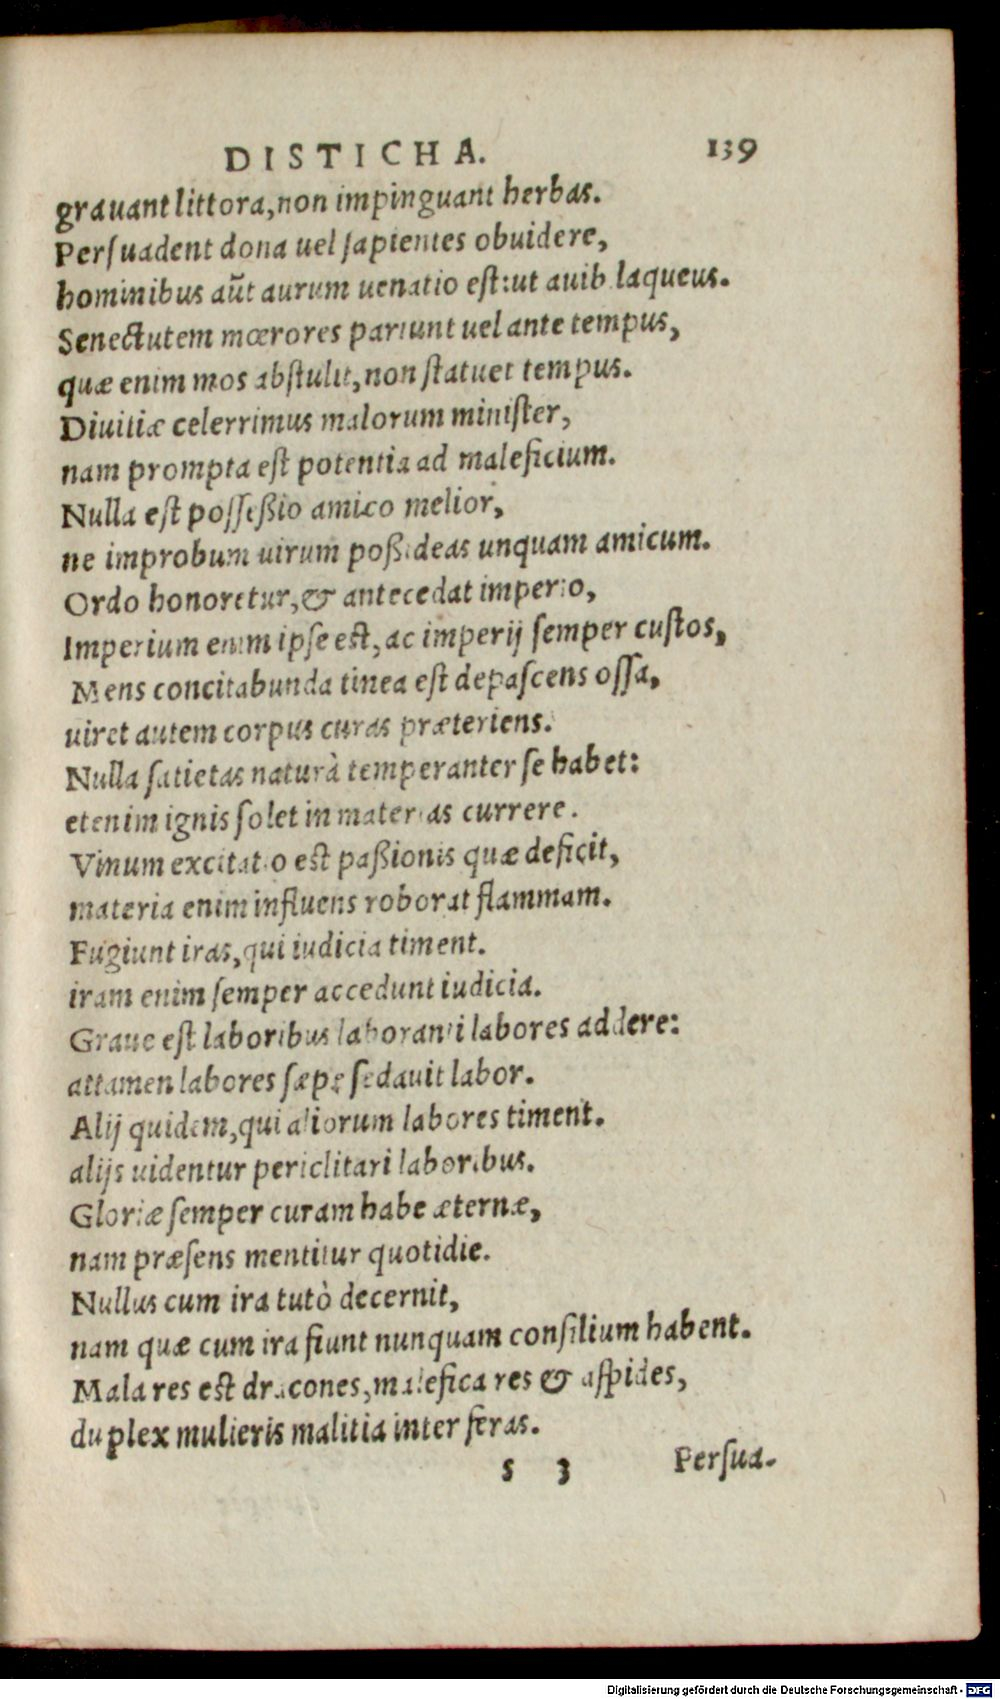 DISTICHA. 139
grauant littora, non impinguant herbas.
Persuadent dona uel sapientes obuidere,
hominibus aũt aurum uenatio est: ut auib. laqueus.
Senectutem mœrores pariunt uel ante tempus,
quæ enim mos abstulit, non statuet tempus.
Diuitiæ celerrimus malorum minister,
nam prompta est potentia ad maleficium.
Nulla est posseßio amico melior,
ne improbum uirum poßideas unquam amicum.
Ordo honoretur, & antecedat imperio,
Imperium enim ipse est, ac imperij semper custos,
Mens concitabunda tinea est depascens ossa,
uiret autem corpus curas præteriens.
Nulla satietas naturà temperanter se habet:
etenim ignis solet in materias currere.
Vinum excitatio est paßionis quæ deficit,
materia enim influens roborat flammam.
Fugiunt iras, qui iudicia timent.
iram enim semper accedunt iudicia.
Graue est laboribus laboranti labores addere:
attamen labores sæpe sedauit labor.
Alij quidem, qui aliorum labores timent.
alijs uidentur periclitari laboribus.
Gloriæ semper curam habe æternæ,
nam præsens mentitur quotidie.
Nullus cum ira tutò decernit,
nam quæ cum ira fiunt nunquam consilium habent.
Mala res est dracones, malefica res & aspides,
duplex mulieris malitia inter feras.
s 3 Persua-
Digitalisierung gefördert durch die Deutsche Forschungsgemeinschaft - DFG